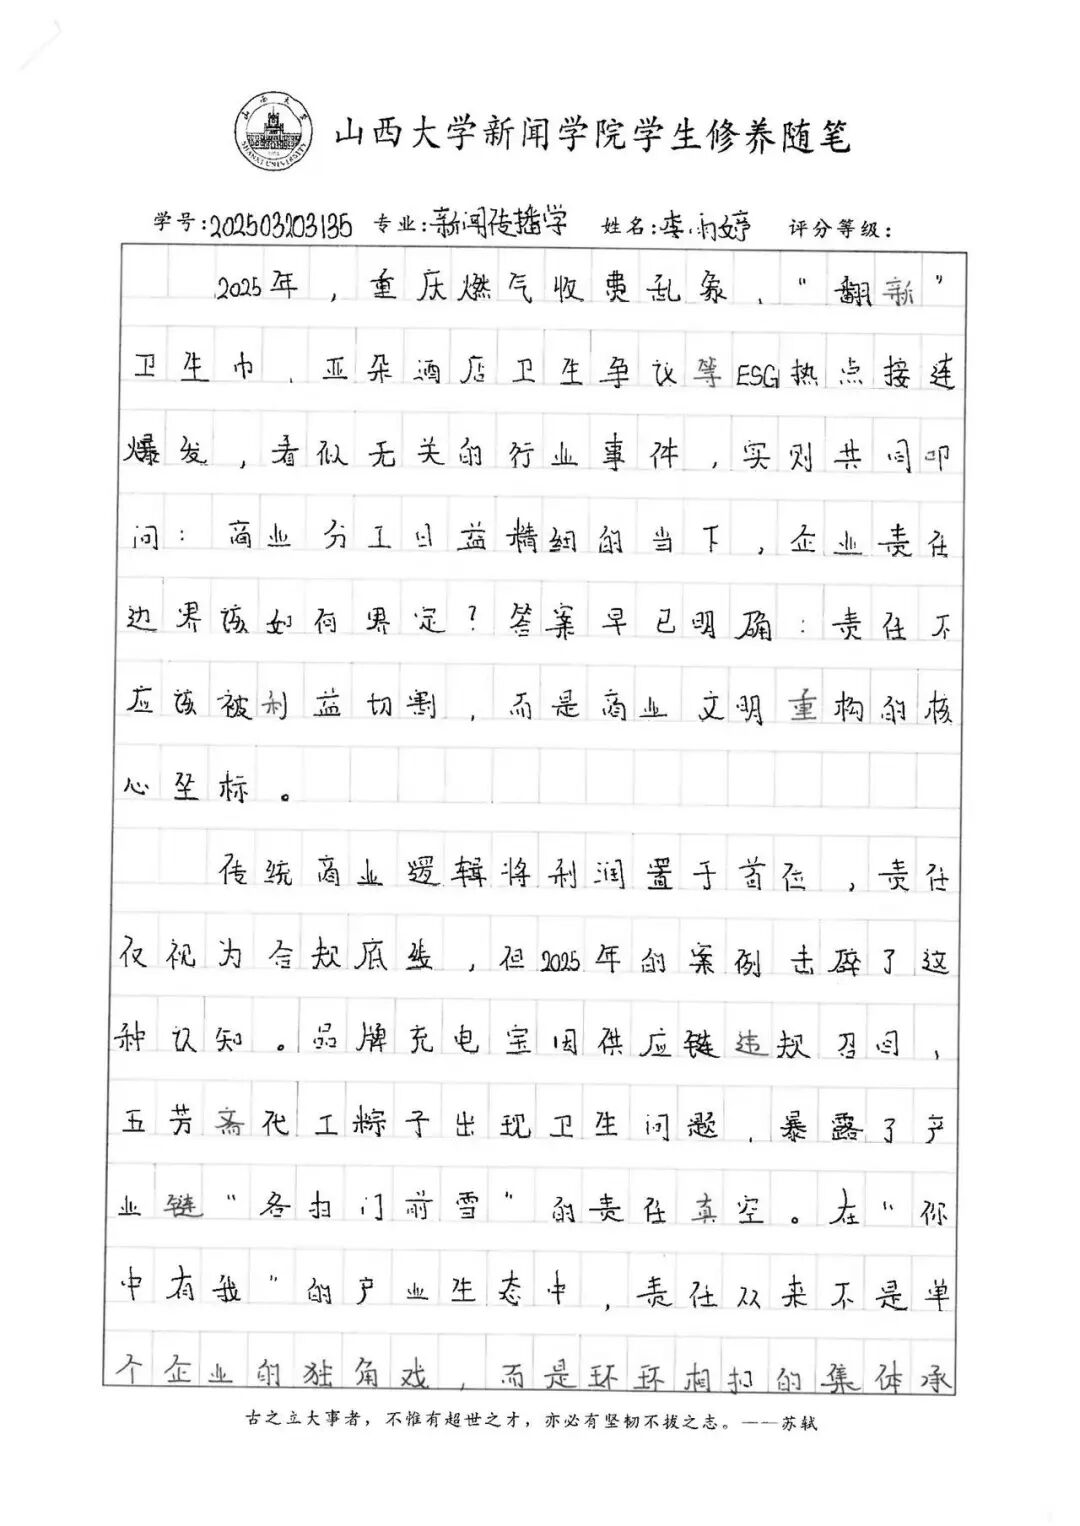 山西大学
SHANXI UNIVERSITY
山西大学新闻学院学生修养随笔
学号:202503203135 专业:新闻传播学 姓名:李雨婷 评分等级:
2025年，重庆燃气收费乱象、“翻新”
卫生巾、亚朵酒店卫生争议等ESG热点接连
爆发，看似无关的行业事件，实则共同叩
问：商业分工日益精细的当下，企业责任
边界该如何界定？答案早已明确：责任不
应该被利益切割，而是商业文明重构的核
心坐标。
传统商业逻辑将利润置于首位，责任
仅视为合规底线，但2025年的案例击碎了这
种认知。品牌充电宝因供应链违规召回，
五芳斋代工粽子出现卫生问题，暴露了产
业链“各扫门前雪”的责任真空。在“你
中有我”的产业生态中，责任从来不是单
个企业的独角戏，而是环环相扣的集体承
古之立大事者，不惟有超世之才，亦必有坚韧不拔之志。——苏轼